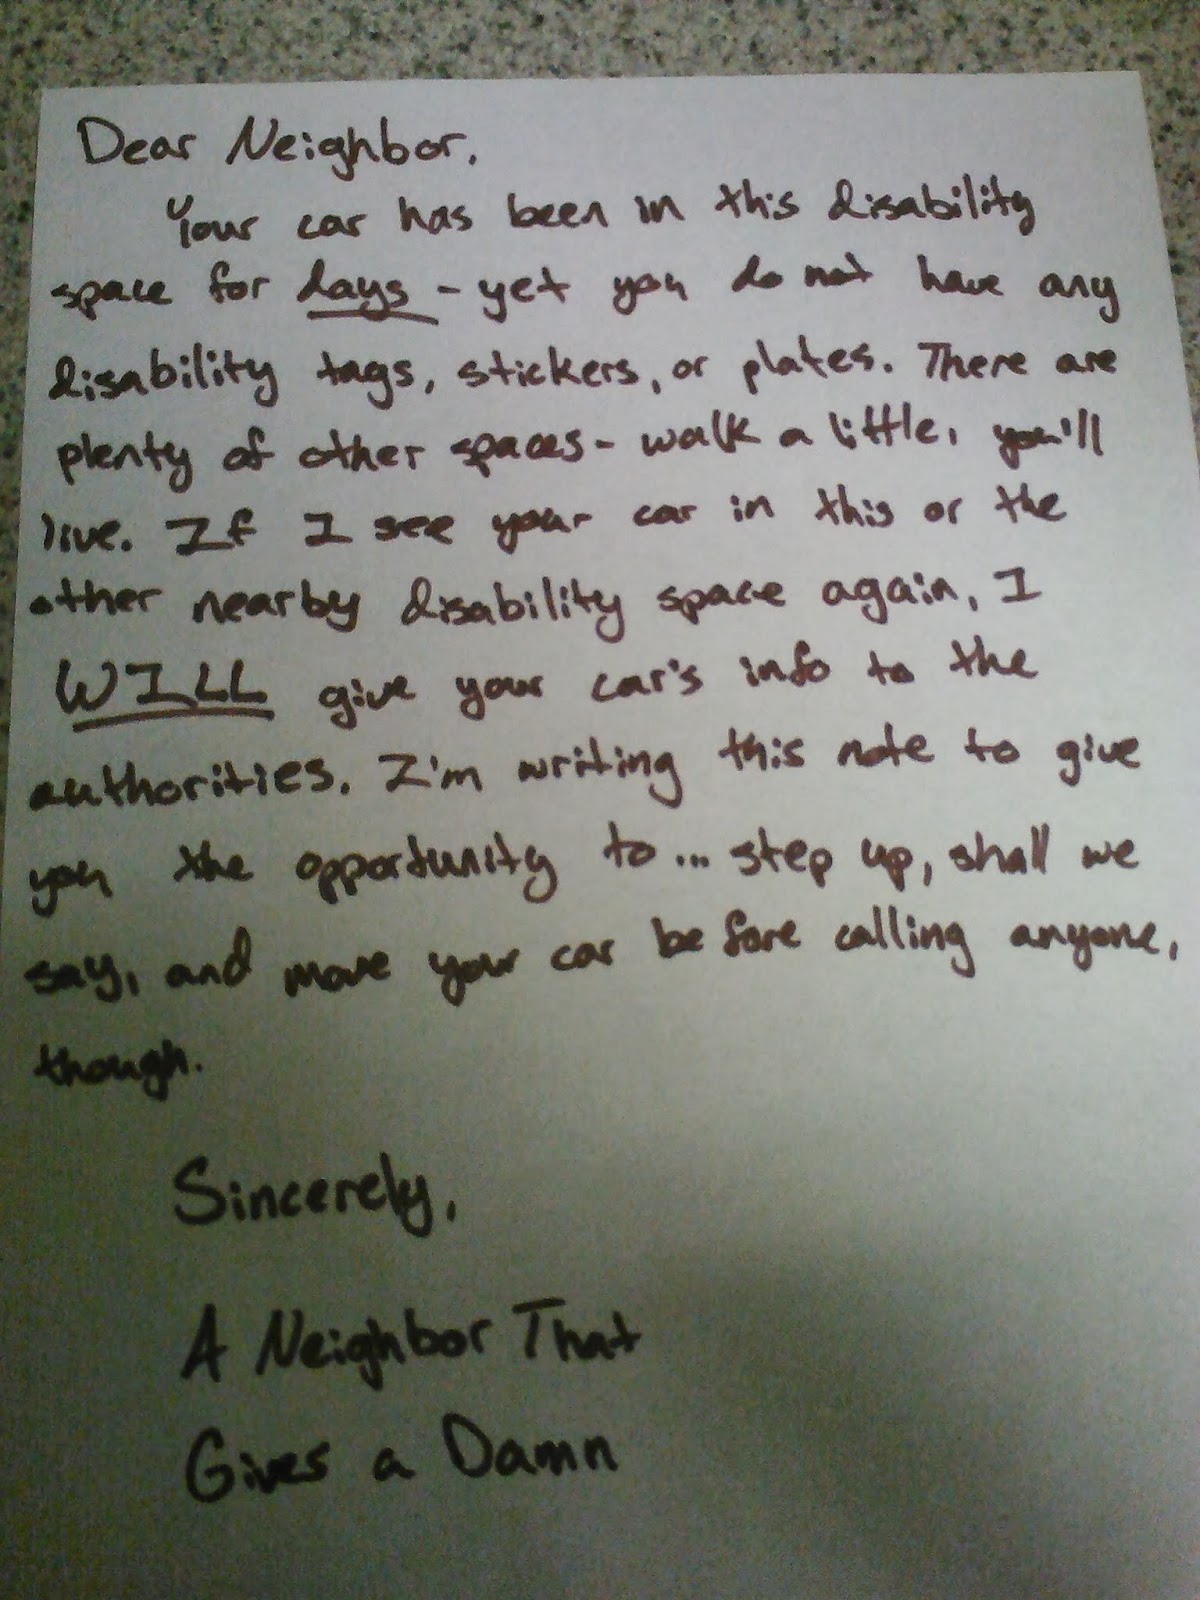 Dear Neighbor,
Your car has been in this disability
space for days - yet you do not have any
disability tags, stickers, or plates. There are
plenty of other spaces - walk a little, you'll
live. If I see your car in this or the
other nearby disability space again, I
WILL give your car's info to the
authorities. I'm writing this note to give
you the opportunity to... step up, shall we
say, and move your car before calling anyone,
though.
Sincerely,
A Neighbor That
Gives a Damn